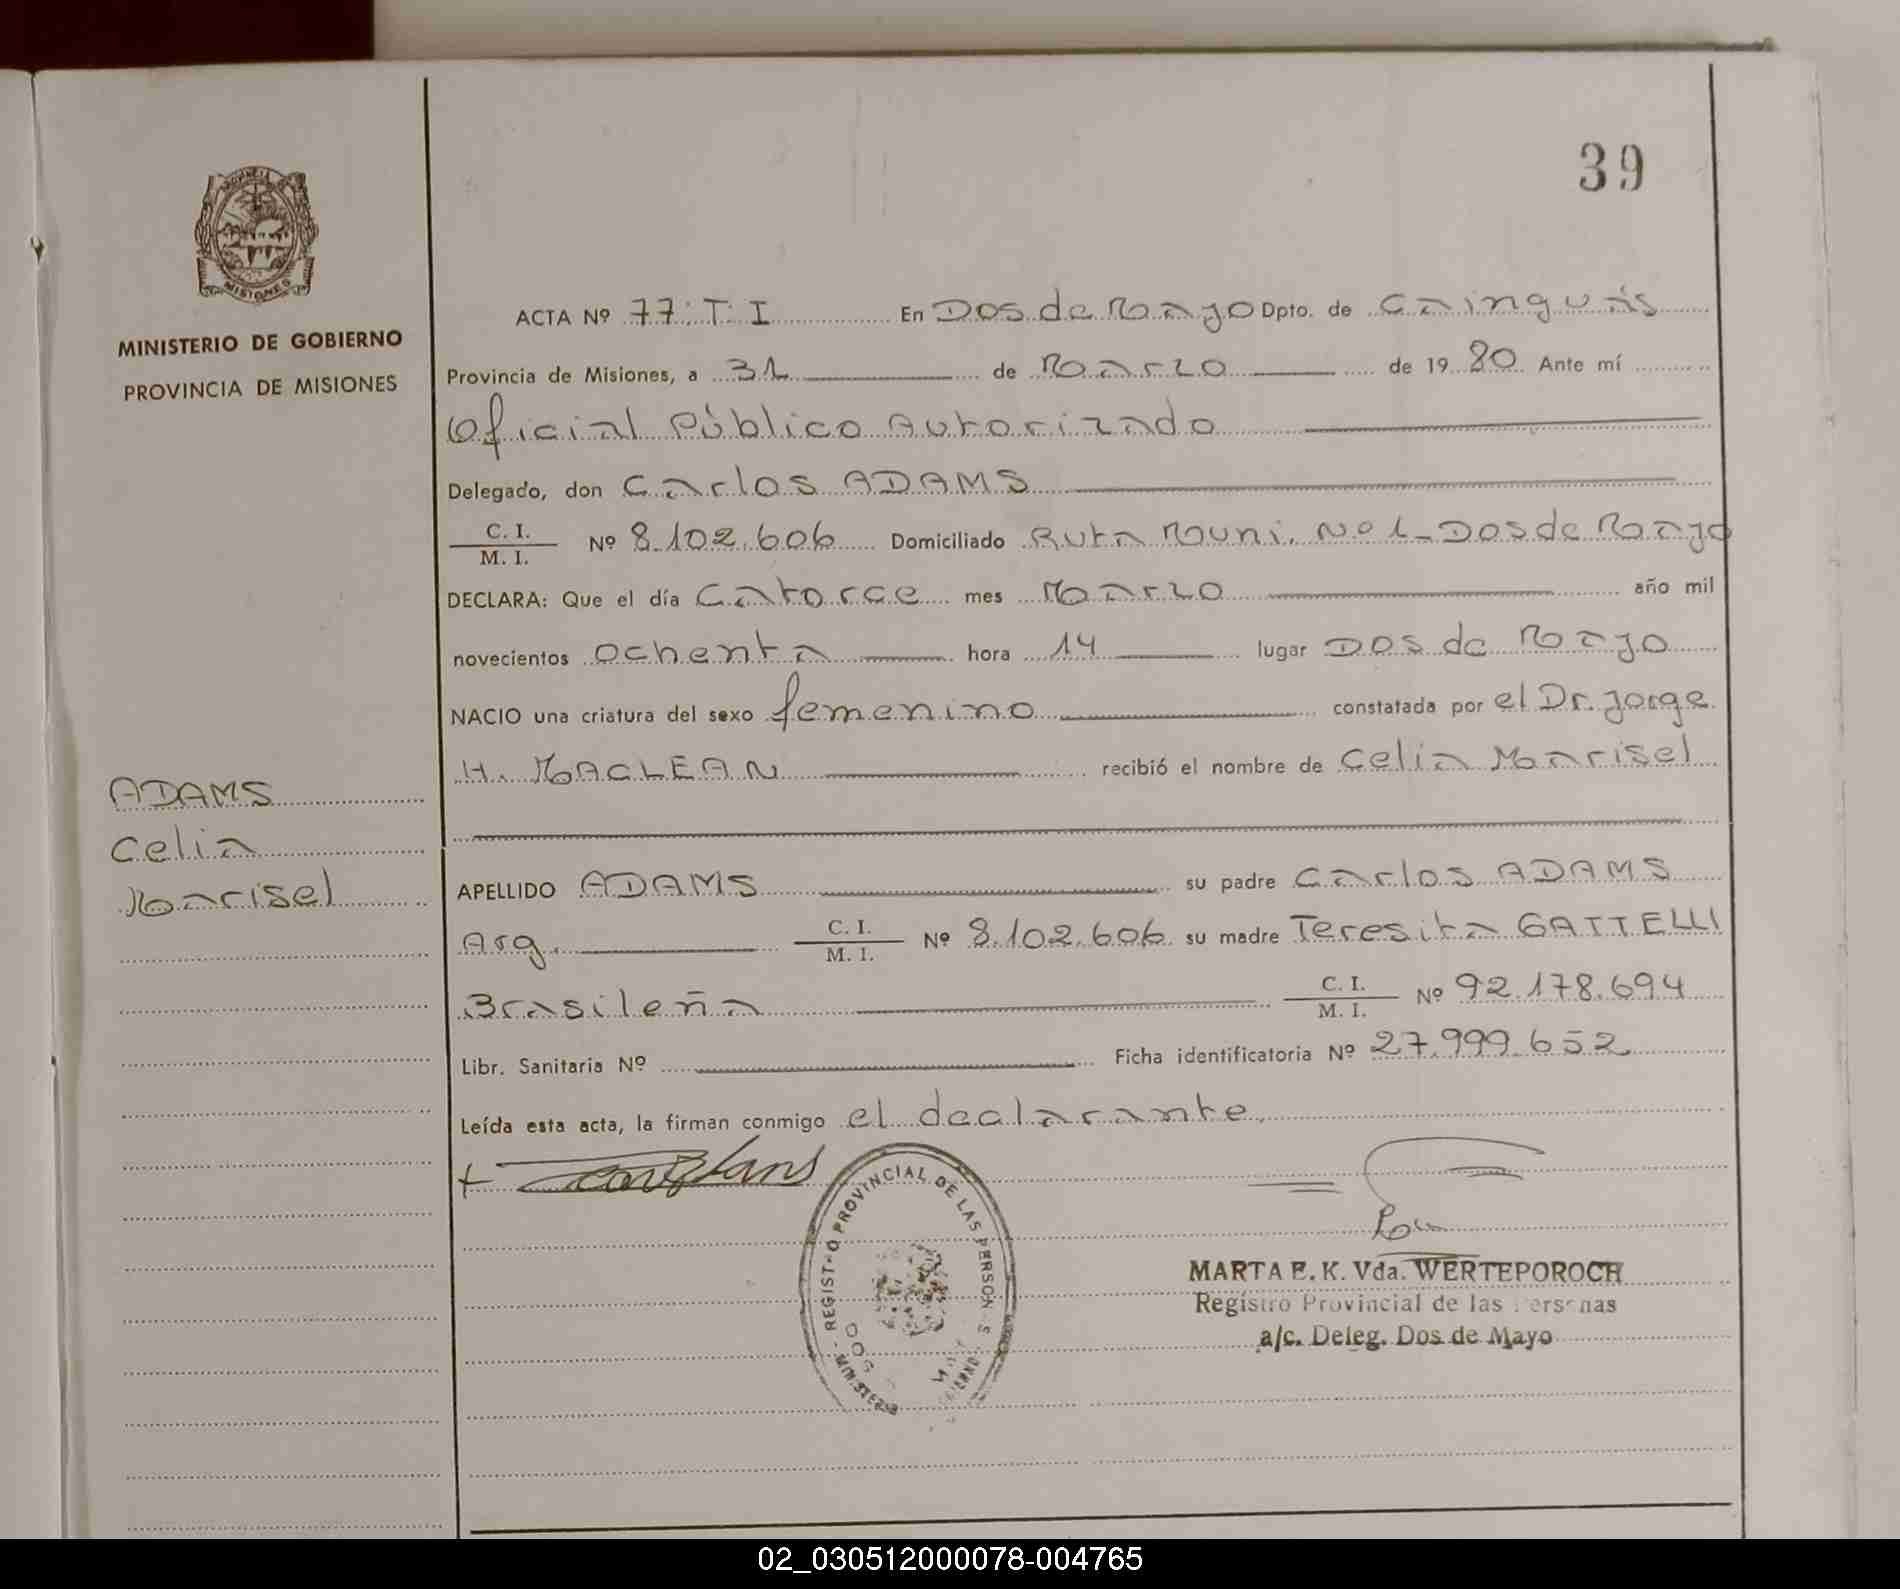 39
MISIONES
MINISTERIO DE GOBIERNO
PROVINCIA DE MISIONES
ACTA Nº 77: T: I En Dos de Mayo Dpto. de Cainguás
Provincia de Misiones, a 31 de Marzo de 1980 Ante mí
Oficial Público Autorizado
Delegado, don Carlos ADAMS
C. I.
M. I. Nº 8.102.606 Domiciliado Ruta Muni. Nº 1 - Dos de Mayo
DECLARA: Que el día Catorce mes Marzo año mil
novecientos ochenta hora 14 lugar Dos de Mayo
NACIO una criatura del sexo femenino constatada por el Dr. Jorge
H. MACLEAN recibió el nombre de Celia Marisel
ADAMS
Celia
Marisel
APELLIDO ADAMS su padre Carlos ADAMS
Arg. C. I.
M. I. Nº 8.102.606 su madre Teresita GATTELLI
Brasileña C. I.
M. I. Nº 92.178.694
Libr. Sanitaria Nº Ficha identificatoria Nº 27.999.652
Leída esta acta, la firman conmigo el declarante.
REGISTRO PROVINCIAL DE LAS PERSONAS
MARTA E. K. Vda. WERTEPOROCH
Registro Provincial de las Personas
a/c. Deleg. Dos de Mayo
02_030512000078-004765